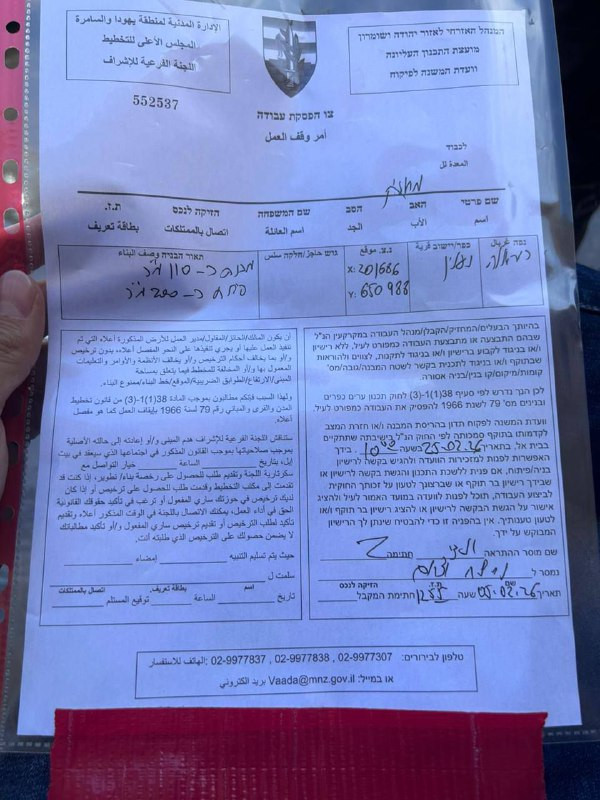 המנהל האזרחי לאזור יהודה ושומרון
מועצת התכנון העליונה
וועדת המשנה לפיקוח
الإدارة المدنية لمنطقة يهودا والسامرة
المجلس الأعلى للتخطيط
اللجنة الفرعية للإشراف
552537
צו הפסקת עבודה
أمر وقف العمل
לכבוד
المعدة لل
שם פרטי האב הסב שם המשפחה הזיקה לנכס ת.ז.
اسم الأب الجد اسم العائلة اتصال بالممتلكات بطاقة تعريف
נפה
כפר/ישוב قرية
נ.צ. מוقع
X: 201666
Y: 650988
גוש חלקה
תאור הבניה وصف البناء
בהיותך הבעלים/המחזיק/הקבלן/מנהל העבודה במקרקעין הנ"ל
שבהם התבצעה או מתבצעת העבודה כמפורט לעיל, ללא רישיון
ו/או בניגוד לקבוע ברישיון או בניגוד לתקנות, לצווים ולהוראות
שבתוקף ו/או בניגוד לתכנית בקשר לשטח המבנה/גובה/מס'
קומות/מיקום/קו בנין/בניה אסורה.
לכן הנך נדרש לפי סעיף 38(1)(1-3) לחוק תכנון ערים כפרים
ובנינים מס' 79 לשנת 1966 להפסיק את העבודה כמפורט לעיל.
וועדת המשנה לפיקוח תדון בהריסת המבנה /או חזרת המצב
לקדמותו בתוקף סמכותה לפי החוק הנ"ל בישיבתה שתתקיים
בבית אל. בתאריך 25.02.26 בשעה 10:00. בידך
האפשרות לפנות למזכירות הוועדה ולהגיש בקשה לרישיון
בניה/פיתוח, אם פנית ללשכת התכנון והגשת בקשה לרישיון או
שבידך רישיון בר תוקף או שברצונך לטעון על זכותך החוקית
לביצוע העבודה, תוכל לפנות לוועדה במועד האמור לעיל ולהציג
אישור על הגשת הבקשה לרישיון או להציג רישיון בר תוקף ו/או
לטעון טענותיך. אין בהפניה זו כדי להבטיח שינתן לך הרישיון
המבוקש על ידך.
שם מוסר ההתראה חתימה
נמסר ל
שם ת.ז. הזיקה לנכס
תאריך 05.02.26 שעה חתימת המקבל
أن يكون المالك/الحائز/المقاول/مدير العمل للأرض المذكورة أعلاه التي تم
تنفيذ العمل عليها أو يجري تنفيذها على النحو المفصل أعلاه، بدون ترخيص
و/أو بما يخالف أحكام الترخيص و/أو يخالف الأنظمة والأوامر والتعليمات
المعمول بها و/أو المخالفة للمخطط فيما يتعلق بمساحة
المبنى/الارتفاع/الطوابق/الموقع/خط البناء/ممنوع البناء.
ولهذا السبب فإنكم مطالبون بموجب المادة 38(1)(1-3) من قانون تخطيط
المدن والقرى والمباني رقم 79 لسنة 1966 بإيقاف العمل كما هو مفصل
أعلاه.
ستناقش اللجنة الفرعية للإشراف هدم المبنى و/أو إعادته إلى حالته الأصلية
بموجب صلاحياتها بموجب القانون المذكور في اجتماعها الذي سيعقد في بيت
ايل، بتاريخ الساعة خيار التواصل مع
سكرتارية اللجنة وتقديم طلب للحصول على رخصة بناء/ تطوير، إذا كنت قد
تقدمت إلى مكتب التخطيط وقدمت طلب للحصول على ترخيص أو إذا كان
لديك ترخيص في حوزتك ساري المفعول أو ترغب في تأكيد حقوقك القانونية
الحق في أداء العمل، يمكنك الاتصال باللجنة في الوقت المذكور أعلاه وتقديم
تأكيد لطلب الترخيص أو تقديم ترخيص ساري المفعول و/أو تأكيد مطالباتك
لا يضمن حصولك على الترخيص الذي طلبته أنت.
حيث يتم تسليم التنبيه إمضاء
سلمت ل
اسم بطاقة تعريف. اتصال بالممتلكات
تاريخ الساعة توقيع المستلم
טלפון לבירורים: 02-9977307 , 02-9977838 , 02-9977837 :الهاتف للاستفسار
או במייל: Vaada@mnz.gov.il بريد الكتروني